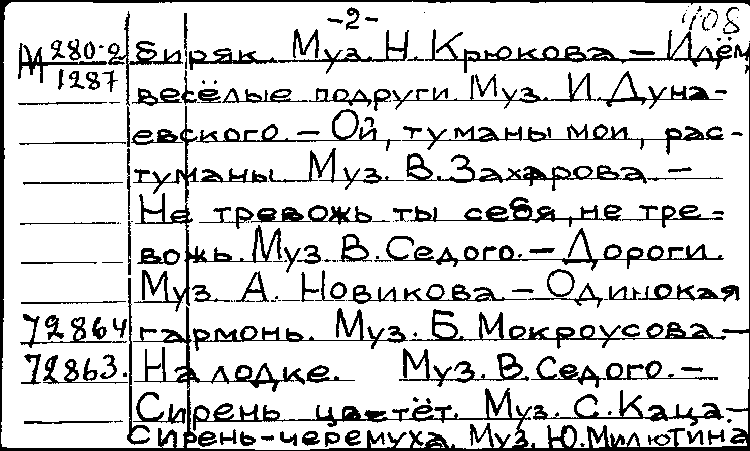 -2- 908
М 280-2 биряк. Муз. Н. Крюкова. – Идём,
1287 весёлые подруги. Муз. И. Дуна-
евского. – Ой, туманы мои, рас-
туманы. Муз. В. Захарова. –
Не тревожь ты себя, не тре-
вожь. Муз. В. Седого. – Дороги.
Муз. А. Новикова. – Одинокая
72864 гармонь. Муз. Б. Мокроусова. –
72863. На лодке. Муз. В. Седого. –
Сирень цветёт. Муз. С. Каца. –
Сирень-черемуха. Муз. Ю. Милютина